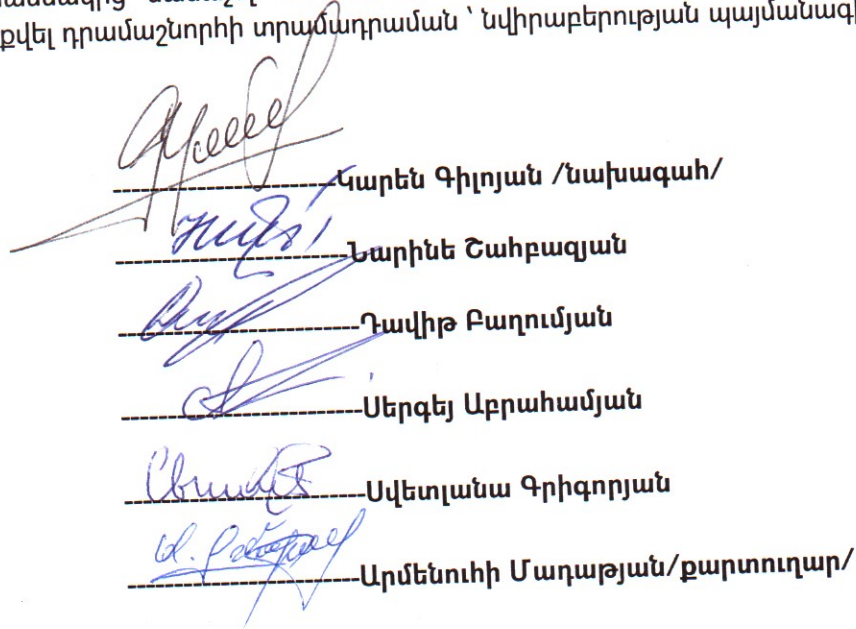 քվել դրամաշնորհի տրամադրաման ՝ նվիրաբերության պայմանագի
Կարեն Գիլոյան /նախագահ/
Նարինե Շահբազյան
Դավիթ Բաղումյան
Սերգեյ Աբրահամյան
Սվետլանա Գրիգորյան
Արմենուհի Մադաթյան/քարտուղար/